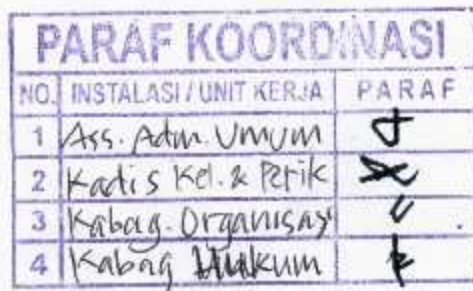 PARAF KOORDINASI
NO. INSTALASI / UNIT KERJA PARAF
1 Ass. Adm. Umum
2 Kadis Kel. & Perik
3 Kabag. Organisasi
4 Kabag Hukum